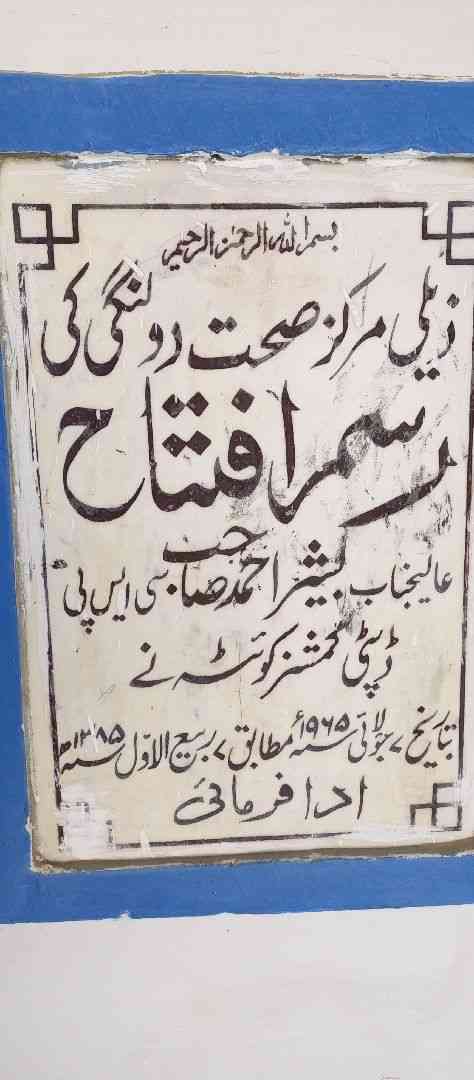 بسم اللہ الرحمٰن الرحیم
ذیلی مرکز صحت دولنگی کی
رسم افتتاح
عالیجناب بشیر احمد صاحب سی ایس پی
ڈپٹی کمشنر کوئٹہ نے
بتاریخ ۷ جولائی سنہ ۱۹۶۵ء مطابق ۷ ربیع الاول سنہ ۱۳۸۵ھ
ادا فرمائی